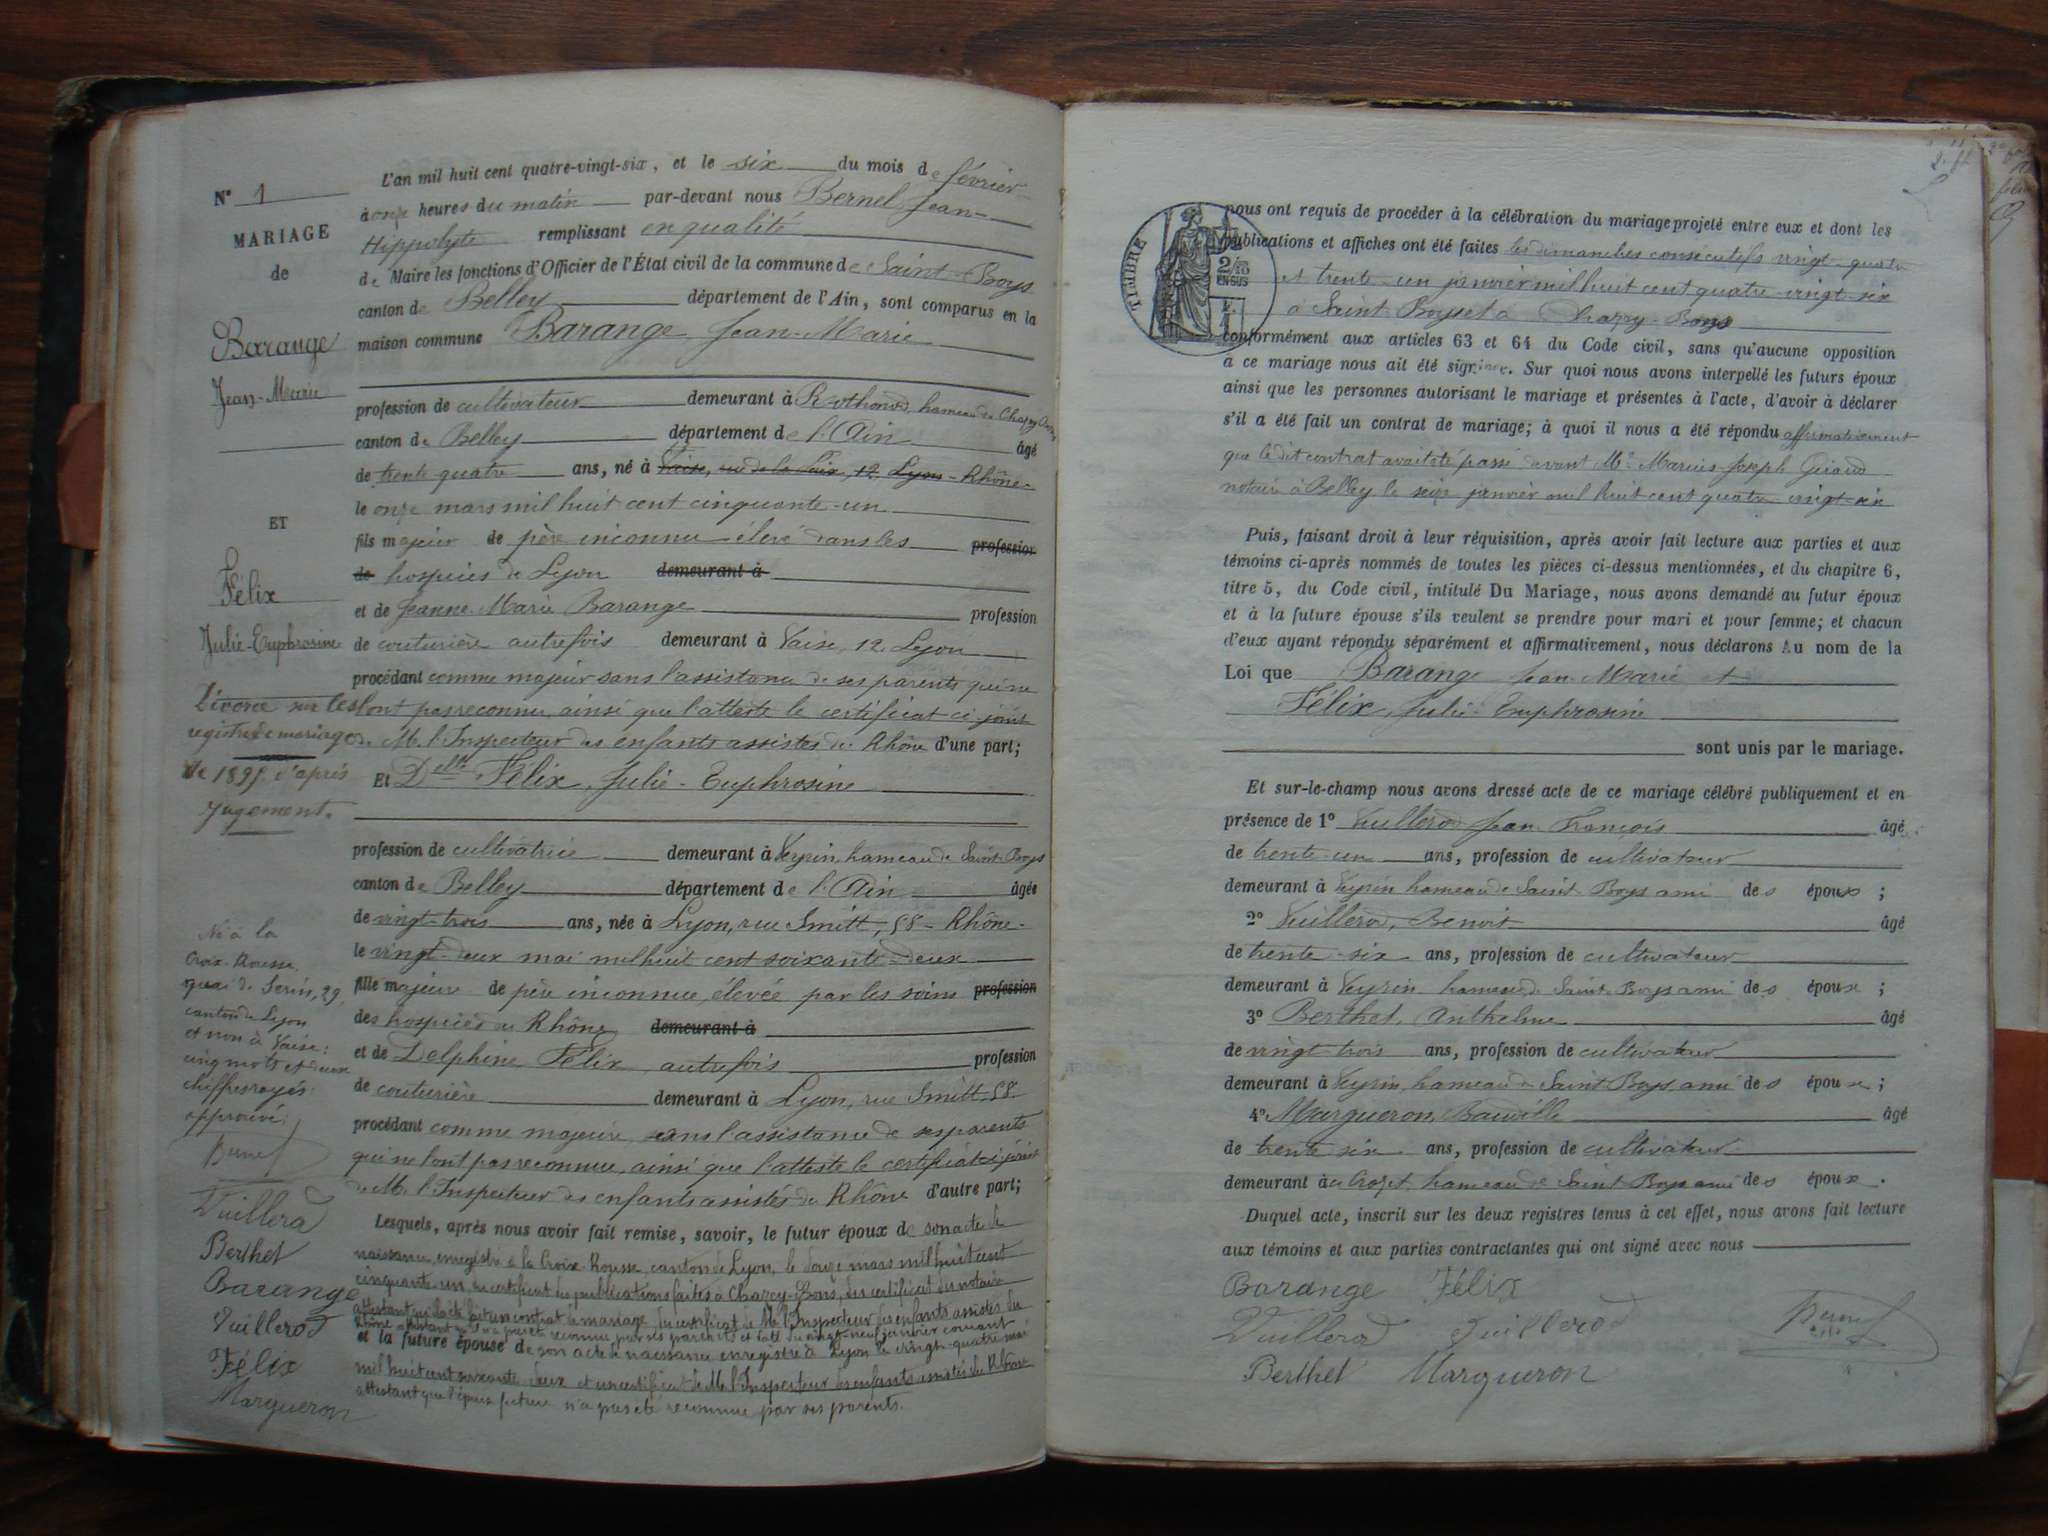 N° 1
MARIAGE
de
Barange
Jean-Marie
ET
Félix
Julie-Euphrosine
Divorce sur les
registres de mariage
de 189 d'après
Jugement.
Né à la
Croix-Rousse,
quai de Serin, 29,
canton de Lyon
et non à Vaise:
cinq mots et deux
chiffres rayés:
approuvé:
Bernel
Vuillerod
Berthet
Barange
Vuillerod
Félix
Marqueron
L'an mil huit cent quatre-vingt-six, et le six du mois de février
à onze heures du matin par-devant nous Bernel Jean-
Hippolyte remplissant en qualité
de Maire les fonctions d'Officier de l'État civil de la commune de Saint-Boys
canton de Belley département de l'Ain, sont comparus en la
maison commune Barange Jean-Marie
profession de cultivateur demeurant à Rothonod, hameau de
canton de Belley département de l'Ain âgé
de trente-quatre ans, né à Vaise, rue de la 12, Lyon - Rhône-
le onze mars mil huit cent cinquante-un
fils majeur de père inconnu élevé dans les profession
de hospices de Lyon demeurant à
et de Jeanne-Marie Barange profession
de couturière autrefois demeurant à Vaise, 12, Lyon
procédant comme majeur sans l'assistance de ses parents qui ne
l'ont pas reconnu, ainsi que l'atteste le certificat ci-joint
de M. l'Inspecteur des enfants assistés du Rhône d'une part;
Et Delle Félix, Julie-Euphrosine
profession de cultivatrice demeurant à Veyrin, hameau de Saint-Boys
canton de Belley département de l'Ain âgée
de vingt-trois ans, née à Lyon, rue Smitt, 58 - Rhône-
le vingt-deux mai mil huit cent soixante-deux
fille majeure de père inconnu, élevée par les soins profession
des hospices du Rhône demeurant à
et de Delphine Félix, autrefois profession
de couturière demeurant à Lyon, rue Smitt, 58.
procédant comme majeure, sans l'assistance de ses parents
qui ne l'ont pas reconnue, ainsi que l'atteste le certificat ci-joint
de M. l'Inspecteur des enfants assistés du Rhône d'autre part;
Lesquels, après nous avoir fait remise, savoir, le futur époux de son acte de
naissance enregistré à la Croix-Rousse, canton de Lyon, le douze mars mil huit cent
cinquante-un, du certificat des publications faites à Charcy-Bons, du certificat du notaire
attestant qu'il a été fait un contrat de mariage, du certificat de M. l'Inspecteur des enfants assistés du
Rhône attestant qu'il n'a pas été reconnu par ses parents et daté du vingt-neuf janvier courant
et la future épouse de son acte de naissance enregistré à Lyon le vingt-quatre mai
mil huit cent soixante-deux et un certificat de M. l'Inspecteur des enfants assistés du Rhône
attestant que l'épouse future n'a pas été reconnue par ses parents.
TIMBRE
nous ont requis de procéder à la célébration du mariage projeté entre eux et dont les
publications et affiches ont été faites les dimanches consécutifs vingt-quatre
et trente-un janvier mil huit cent quatre-vingt-six
à Saint-Boys et à Bons
conformément aux articles 63 et 64 du Code civil, sans qu'aucune opposition
à ce mariage nous ait été signifiée. Sur quoi nous avons interpellé les futurs époux
ainsi que les personnes autorisant le mariage et présentes à l'acte, d'avoir à déclarer
s'il a été fait un contrat de mariage; à quoi il nous a été répondu affirmativement
que le dit contrat avait été passé devant Me Marius Joseph
notaire à Belley le seize janvier mil huit cent quatre-vingt-six
Puis, faisant droit à leur réquisition, après avoir fait lecture aux parties et aux
témoins ci-après nommés de toutes les pièces ci-dessus mentionnées, et du chapitre 6,
titre 5, du Code civil, intitulé Du Mariage, nous avons demandé au futur époux
et à la future épouse s'ils veulent se prendre pour mari et pour femme; et chacun
d'eux ayant répondu séparément et affirmativement, nous déclarons Au nom de la
Loi que Barange Jean-Marie et
Félix, Julie-Euphrosine
sont unis par le mariage.
Et sur-le-champ nous avons dressé acte de ce mariage célébré publiquement et en
présence de 1° Vuillerod Jean François âgé
de trente-un ans, profession de cultivateur
demeurant à Veyrin hameau de Saint-Boys ami des époux;
2° Vuillerod, Benoit âgé
de trente-six ans, profession de cultivateur
demeurant à Veyrin hameau de Saint-Boys ami des époux;
3° Berthet, Anthelme âgé
de vingt-trois ans, profession de cultivateur
demeurant à Veyrin, hameau de Saint-Boys ami des époux;
4° Marqueron, âgé
de trente-six ans, profession de cultivateur
demeurant à hameau de Saint-Boys ami des époux.
Duquel acte, inscrit sur les deux registres tenus à cet effet, nous avons fait lecture
aux témoins et aux parties contractantes qui ont signé avec nous
Barange Félix
Vuillerod Vuillerod Bernel
Berthet Marqueron